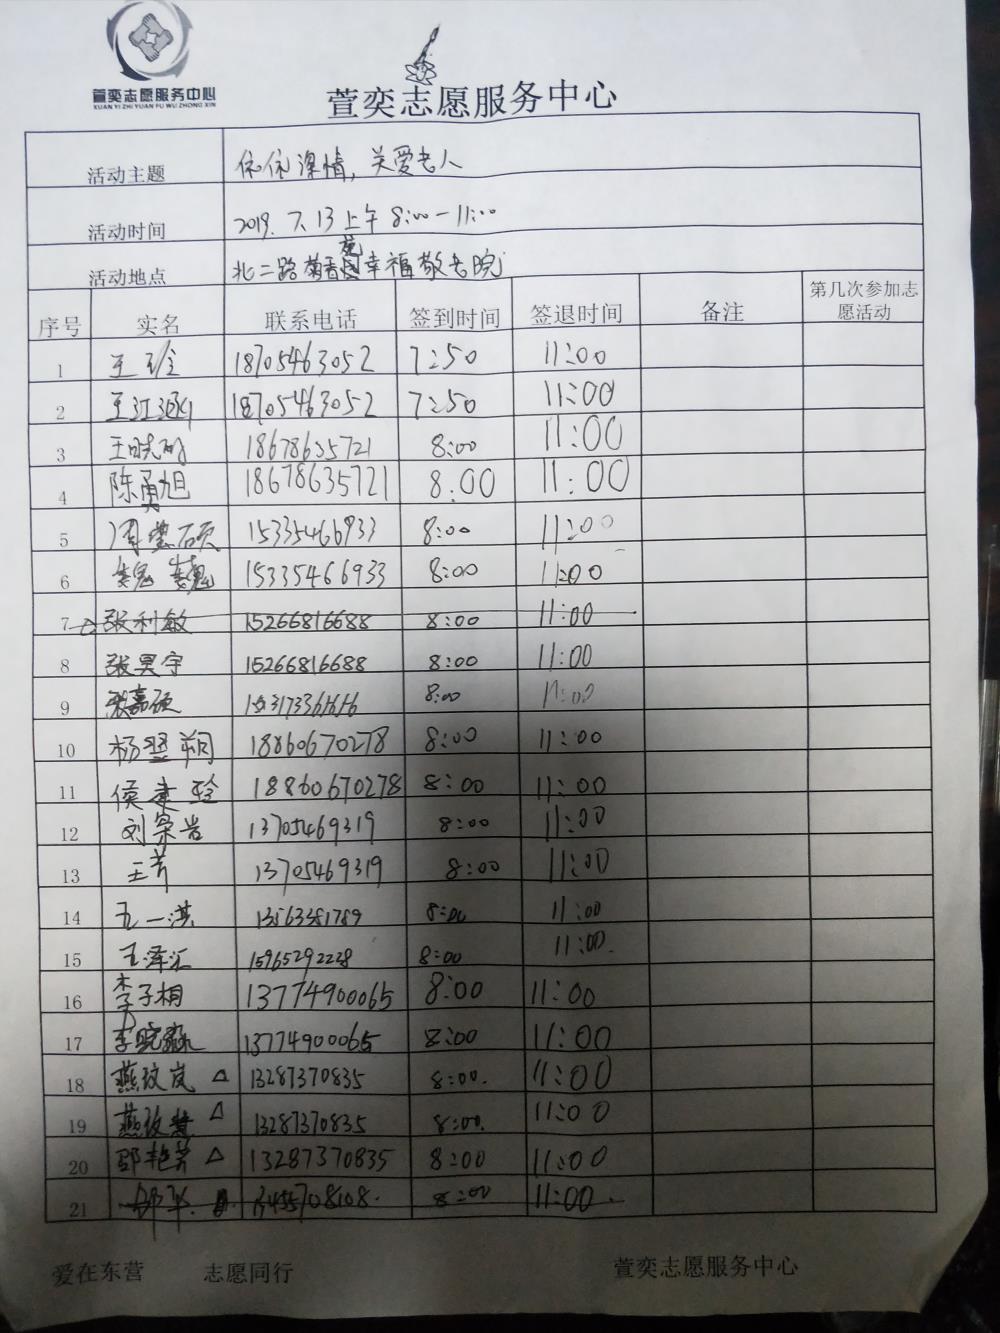 萱奕志愿服务中心
XUAN YI ZHI YUAN FU WU ZHONG XIN
萱奕志愿服务中心
活动主题 依依深情,关爱老人
活动时间 2019.7.13上午 8:00-11:00
活动地点 北二路菊香苑幸福敬老院
序号 实名 联系电话 签到时间 签退时间 备注 第几次参加志愿活动
1 王玲 18705463052 7:50 11:00
2 王江涵 18705463052 7:50 11:00
3 王晓明 18678635721 8:00 11:00
4 陈勇旭 18678635721 8:00 11:00
5 周莹硕 15335466933 8:00 11:00
6 魏巍 15335466933 8:00 11:00
7 张利敏 15266816688 8:00 11:00
8 张昊宇 15266816688 8:00 11:00
9 张嘉硕 8:00 11:00
10 杨翌朔 18860670278 8:00 11:00
11 侯 18860670278 8:00 11:00
12 刘宗岩 13705469319 8:00 11:00
13 王芳 13705469319 8:00 11:00
14 一淇 13563381789 8:00 11:00
15 王泽汇 15965292228 8:00 11:00
16 李子相 13774900065 8:00 11:00
17 李晓 13774900065 8:00 11:00
18 燕玟岚 △ 13287370835 8:00. 11:00
19 燕玫慧 △ 13287370835 8:00. 11:00
20 邵艳芳 △ 13287370835 8:00 11:00
21 8:00 11:00
爱在东营 志愿同行 萱奕志愿服务中心